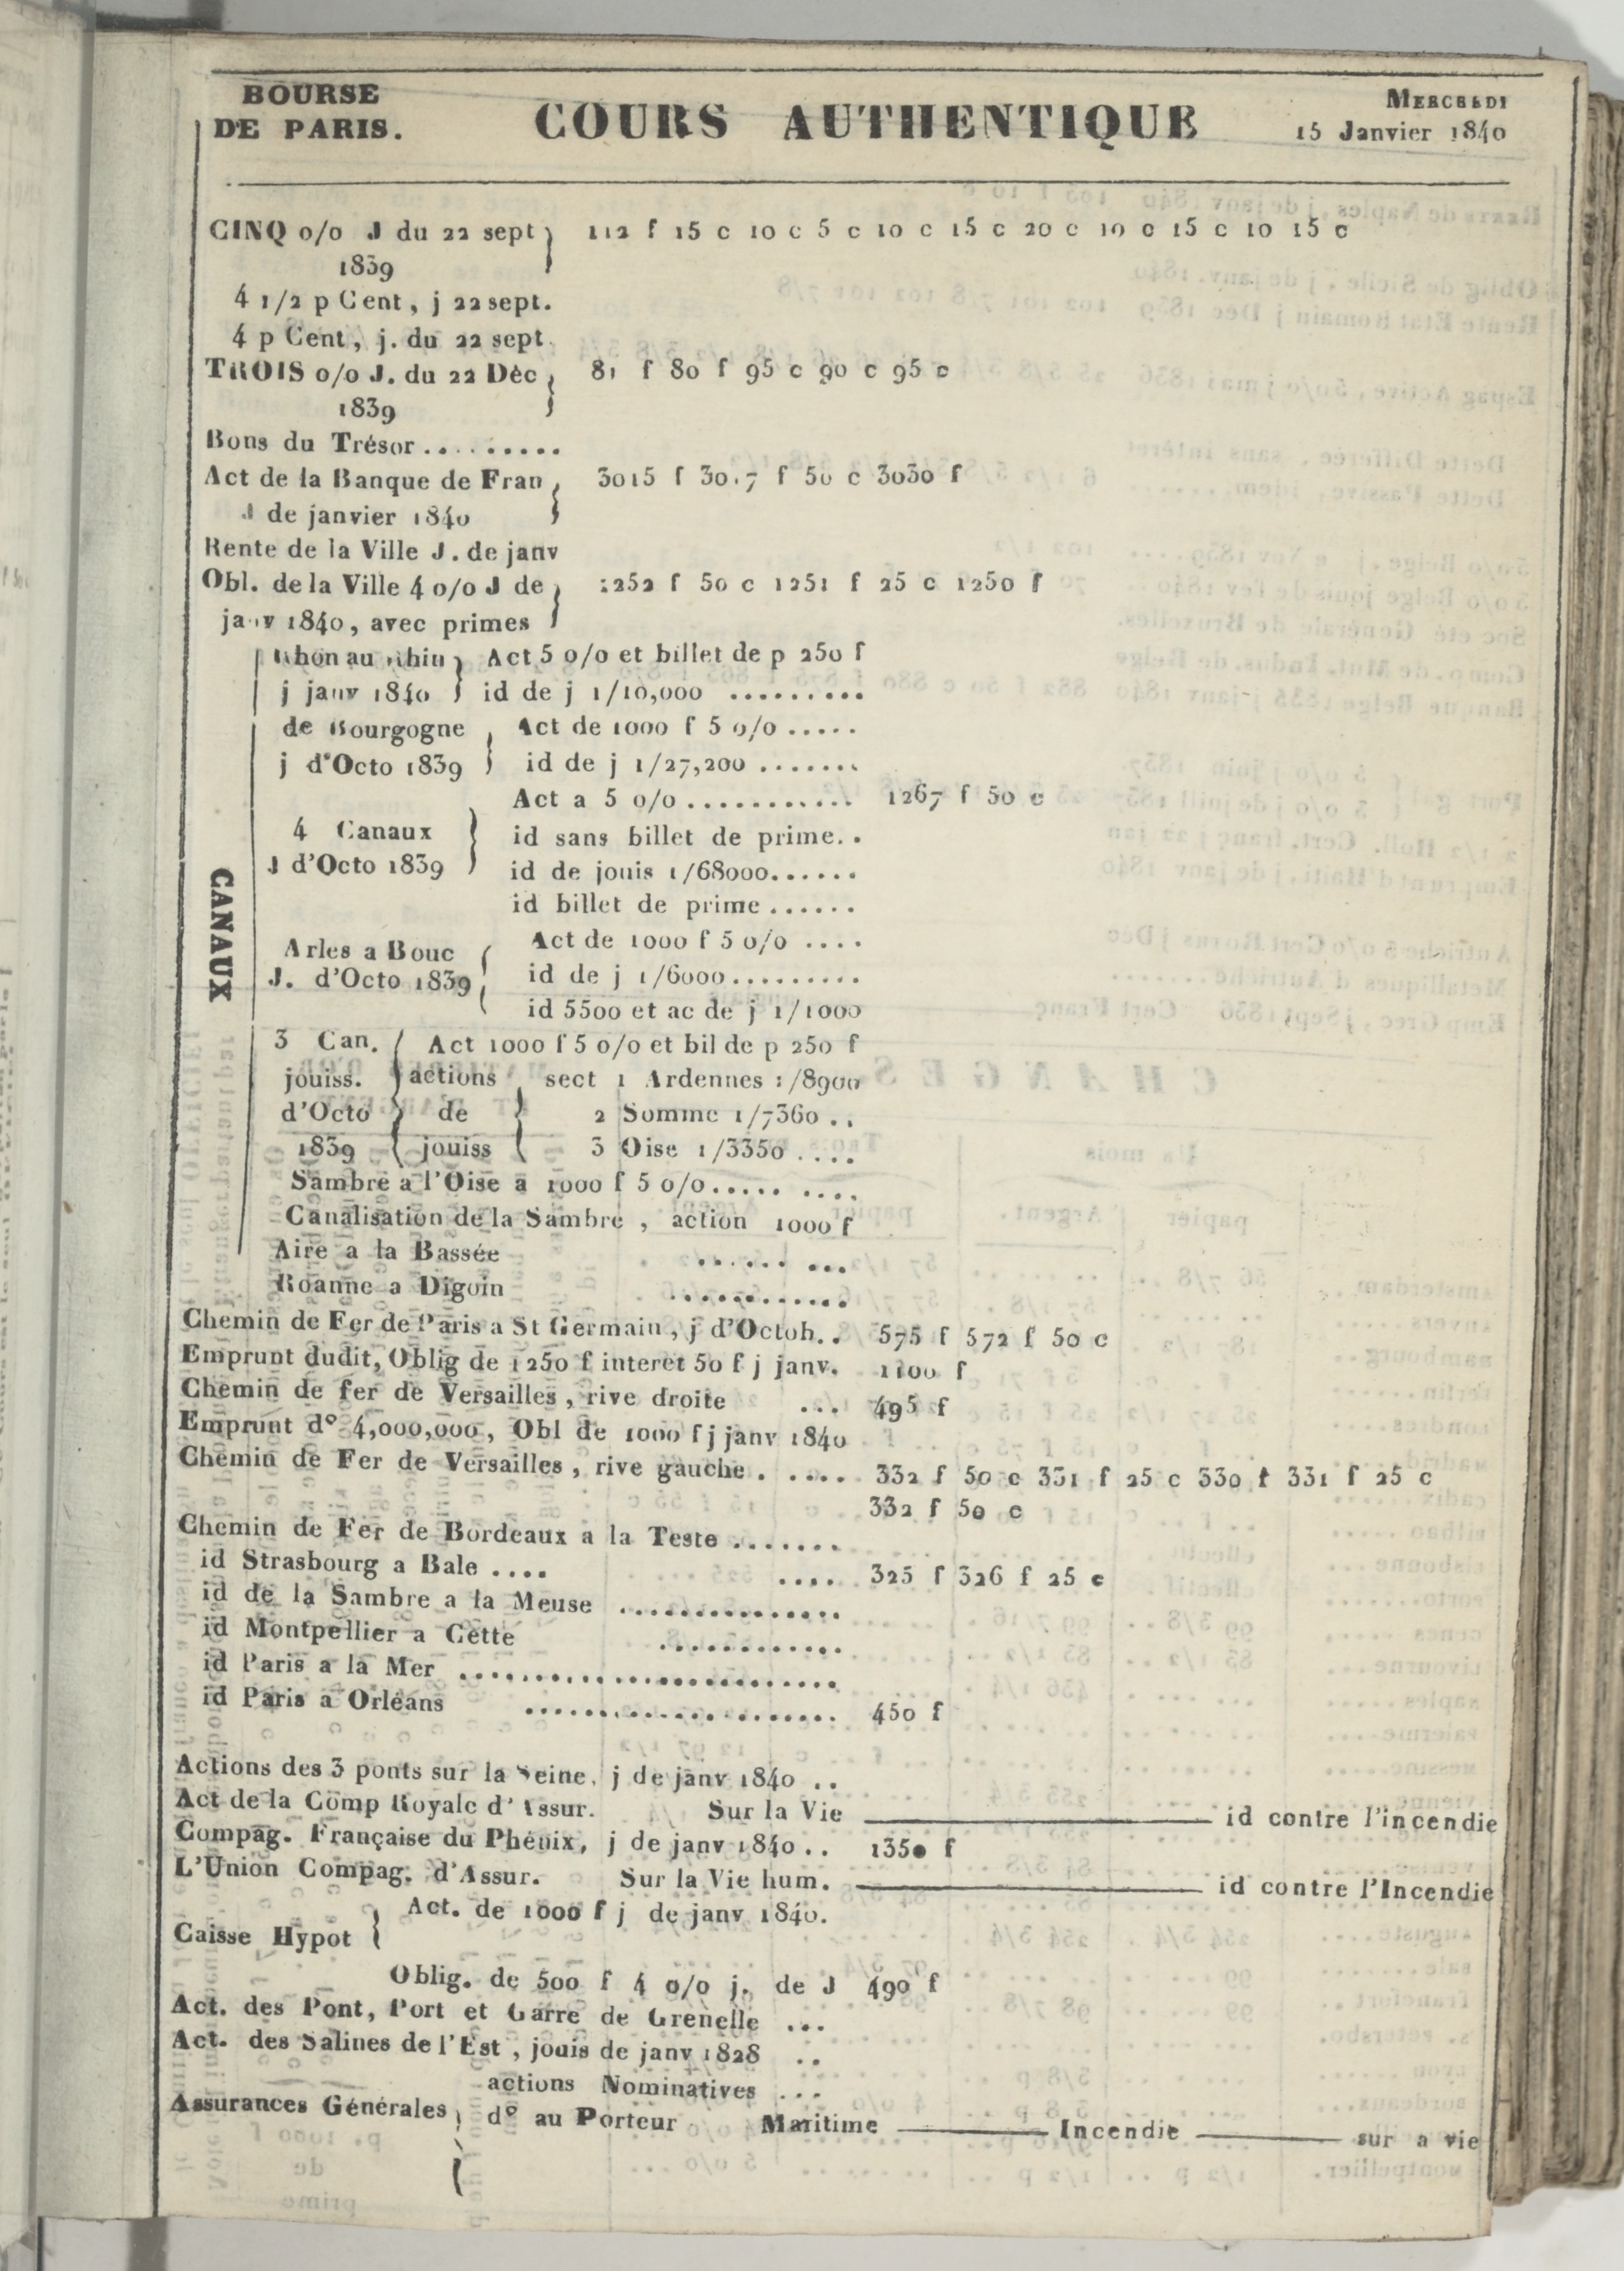 BOURSE
DE PARIS.
COURS AUTHENTIQUE
MERCREDI
15 Janvier 1840
CINQ o/o J du 22 sept 112 f 15 c 10 c 5 c 10 c 15 c 20 c 10 c 15 c 10 15 c
1839
4 1/2 p Cent, j 22 sept.
4 p Cent, j. du 22 sept.
TROIS o/o J. du 22 Déc 81 f 80 f 95 c 90 c 95 c
1839
Bons du Trésor.........
Act de la Banque de Fran 3015 f 30.7 f 50 c 3030 f
J de janvier 1840
Rente de la Ville J. de janv
Obl. de la Ville 4 o/o J de 1252 f 50 c 1251 f 25 c 1250 f
janv 1840, avec primes
CANAUX
Rhon au Rhin Act 5 o/o et billet de p 250 f
j janv 1840 id de j 1/10,000 .........
de Bourgogne Act de 1000 f 5 o/o .....
j d'Octo 1839 id de j 1/27,200 .......
Act a 5 o/o ........... 1267 f 50 c
4 Canaux id sans billet de prime..
J d'Octo 1839 id de jouis 1/68000......
id billet de prime ......
Arles a Bouc Act de 1000 f 5 o/o ....
J. d'Octo 1839 id de j 1/6000.........
id 5500 et ac de j 1/1000
3 Can. Act 1000 f 5 o/o et bil de p 250 f
jouiss. actions sect 1 Ardennes 1/8900
d'Octo de 2 Somme 1/7360 ..
1839 jouiss 3 Oise 1/3350 ....
Sambre a l'Oise a 1000 f 5 o/o..... ....
Canalisation de la Sambre, action 1000 f
Aire a la Bassée ...... ...
Roanne a Digoin ............
Chemin de Fer de Paris a St Germain, j d'Octob.. 575 f 572 f 50 c
Emprunt dudit, Oblig de 1250 f interet 50 f j janv. 1100 f
Chemin de fer de Versailles, rive droite ... 495 f
Emprunt d° 4,000,000, Obl de 1000 f j janv 1840
Chemin de Fer de Versailles, rive gauche . .... 332 f 50 c 331 f 25 c 330 f 331 f 25 c
332 f 50 c
Chemin de Fer de Bordeaux a la Teste .......
id Strasbourg a Bale .... .... 325 f 326 f 25 c
id de la Sambre a la Meuse ...............
id Montpellier a Cette ............
id Paris a la Mer ..........................
id Paris a Orléans ..................... 450 f
Actions des 3 ponts sur la Seine, j de janv 1840 ..
Act de la Comp Royale d'Assur. Sur la Vie ———— id contre l'incendie
Compag. Française du Phénix, j de janv 1840.. 1350 f
L'Union Compag. d'Assur. Sur la Vie hum. ———— id contre l'Incendie
Act. de 1000 f j de janv 1840.
Caisse Hypot
Oblig. de 500 f 4 o/o j. de J 490 f
Act. des Pont, Port et Garre de Grenelle ...
Act. des Salines de l'Est, jouis de janv 1828 ..
actions Nominatives ...
Assurances Générales d° au Porteur Maritime ———— Incendie ———— sur a vie